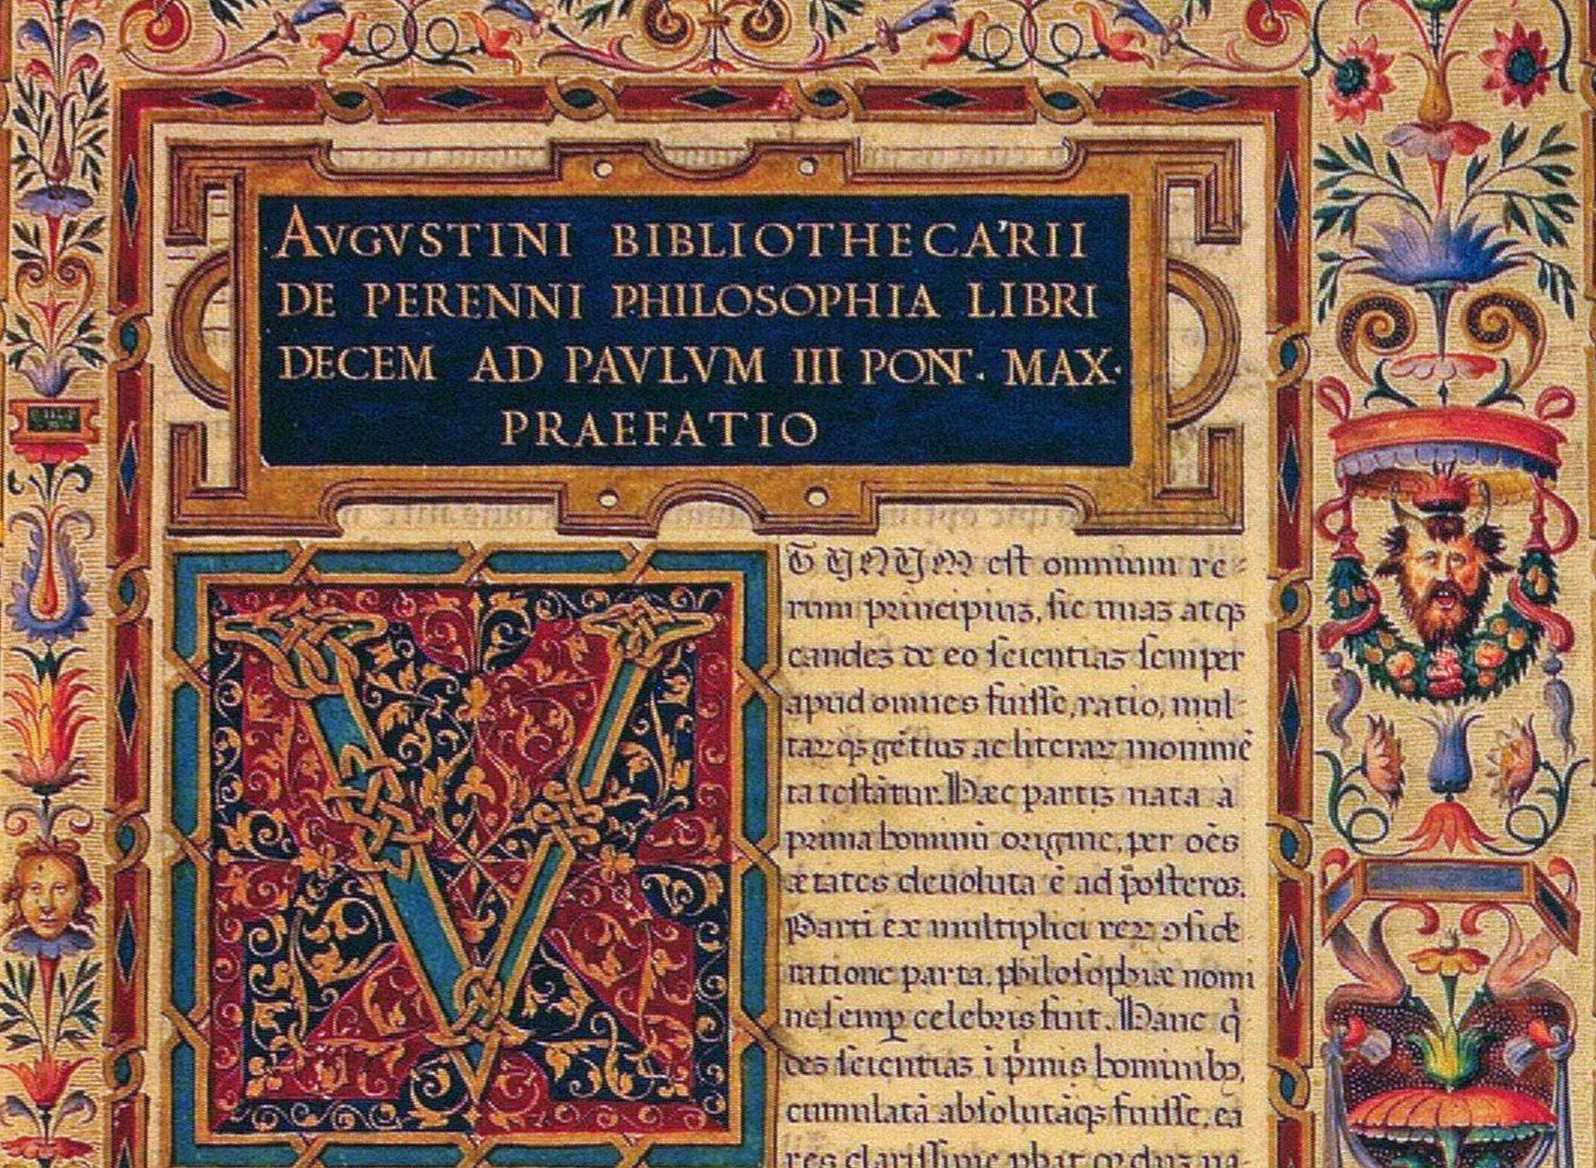 AVGVSTINI BIBLIOTHECARII
DE PERENNI PHILOSOPHIA LIBRI
DECEM AD PAVLVM III PONT. MAX.
PRAEFATIO
V
T VNVM est omnium re=
rum principiuꝫ, sic unaꝫ atqꝫ
eandeꝫ de eo scientiaꝫ semper
apud omnes fuisse, ratio, mul-
taꝝqꝫ gẽtiuꝫ ac literaꝝ monumẽ
ta testãtur. Haec partiꝫ nata à
prima hominũ origine, per oẽs
ætates deuoluta ẽ ad p̃osteros.
Parti ex multiplici reꝝ ꝯside
ratione parta, philosophiæ nomi
ne semp celebris fuit. Hanc q̃
des scientias i p̃mis hominibꝫ,
cumulatã absolutãqꝫ fuisse, eã